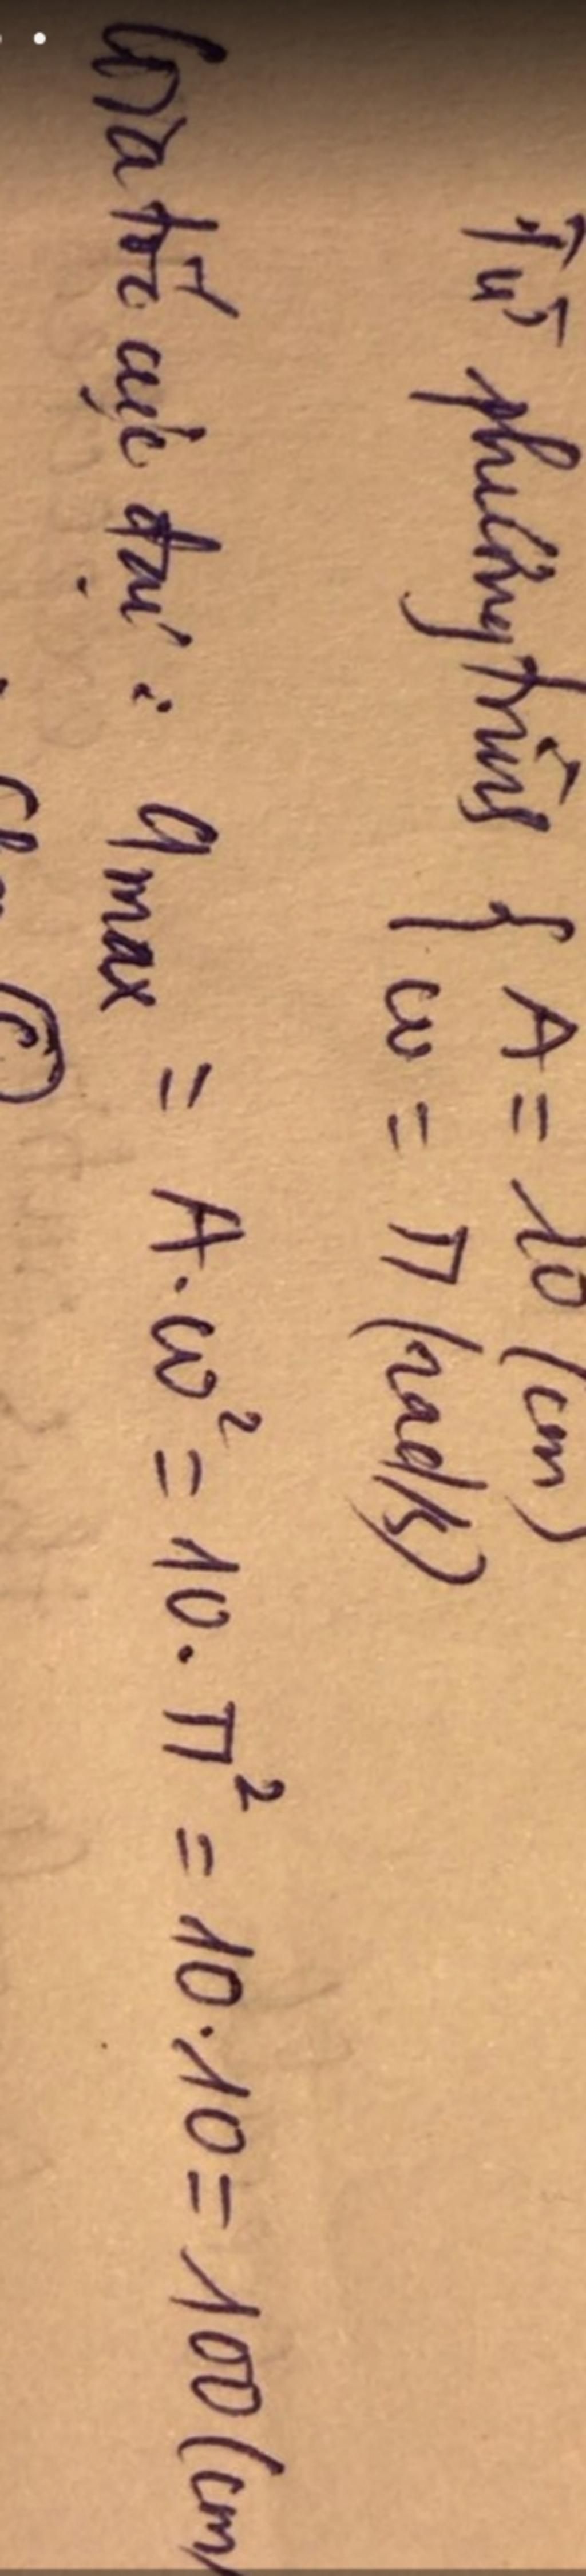 Từ phương trình { A = 10 (cm)
ω = π (rad/s)
Gia tốc cực đại : amax = A.ω² = 10.π² = 10.10 = 100 (cm/
(C)